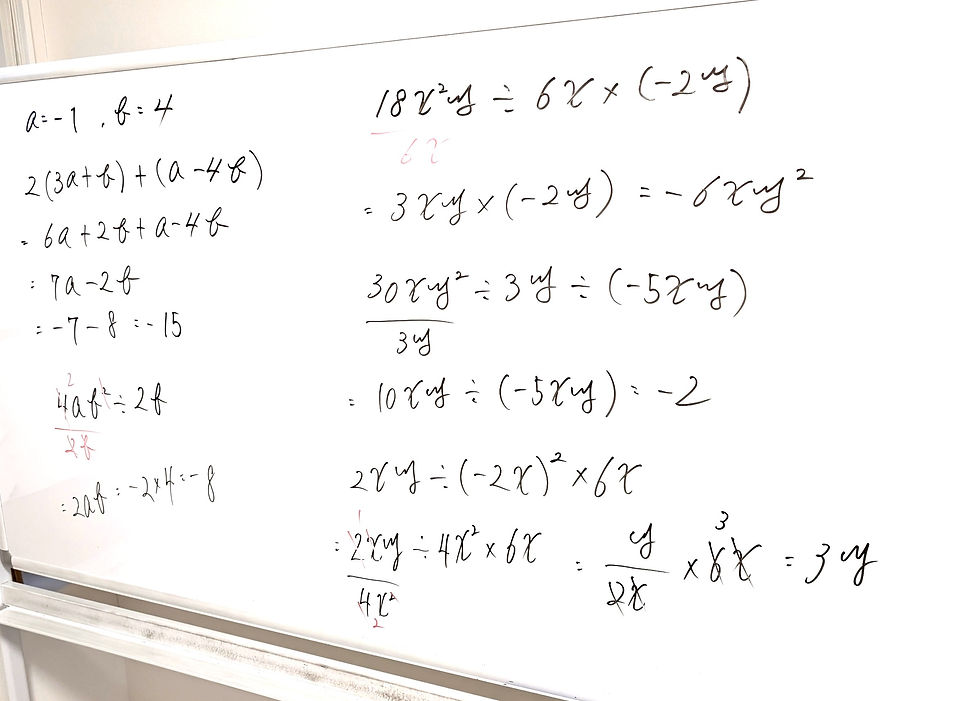 a=-1, b=4
2(3a+b)+(a-4b)
= 6a+2b+a-4b
= 7a-2b
= -7-8 = -15
2
4ab²÷2b
2b
= 2ab = -2×4 = -8
18x²y ÷ 6x × (-2y)
6x
= 3xy × (-2y) = -6xy²
30xy² ÷ 3y ÷ (-5xy)
3y
= 10xy ÷ (-5xy) = -2
2xy ÷ (-2x)² × 6x
1 3
= 2xy ÷ 4x² × 6x = y × 6x = 3y
4x² 2x
2